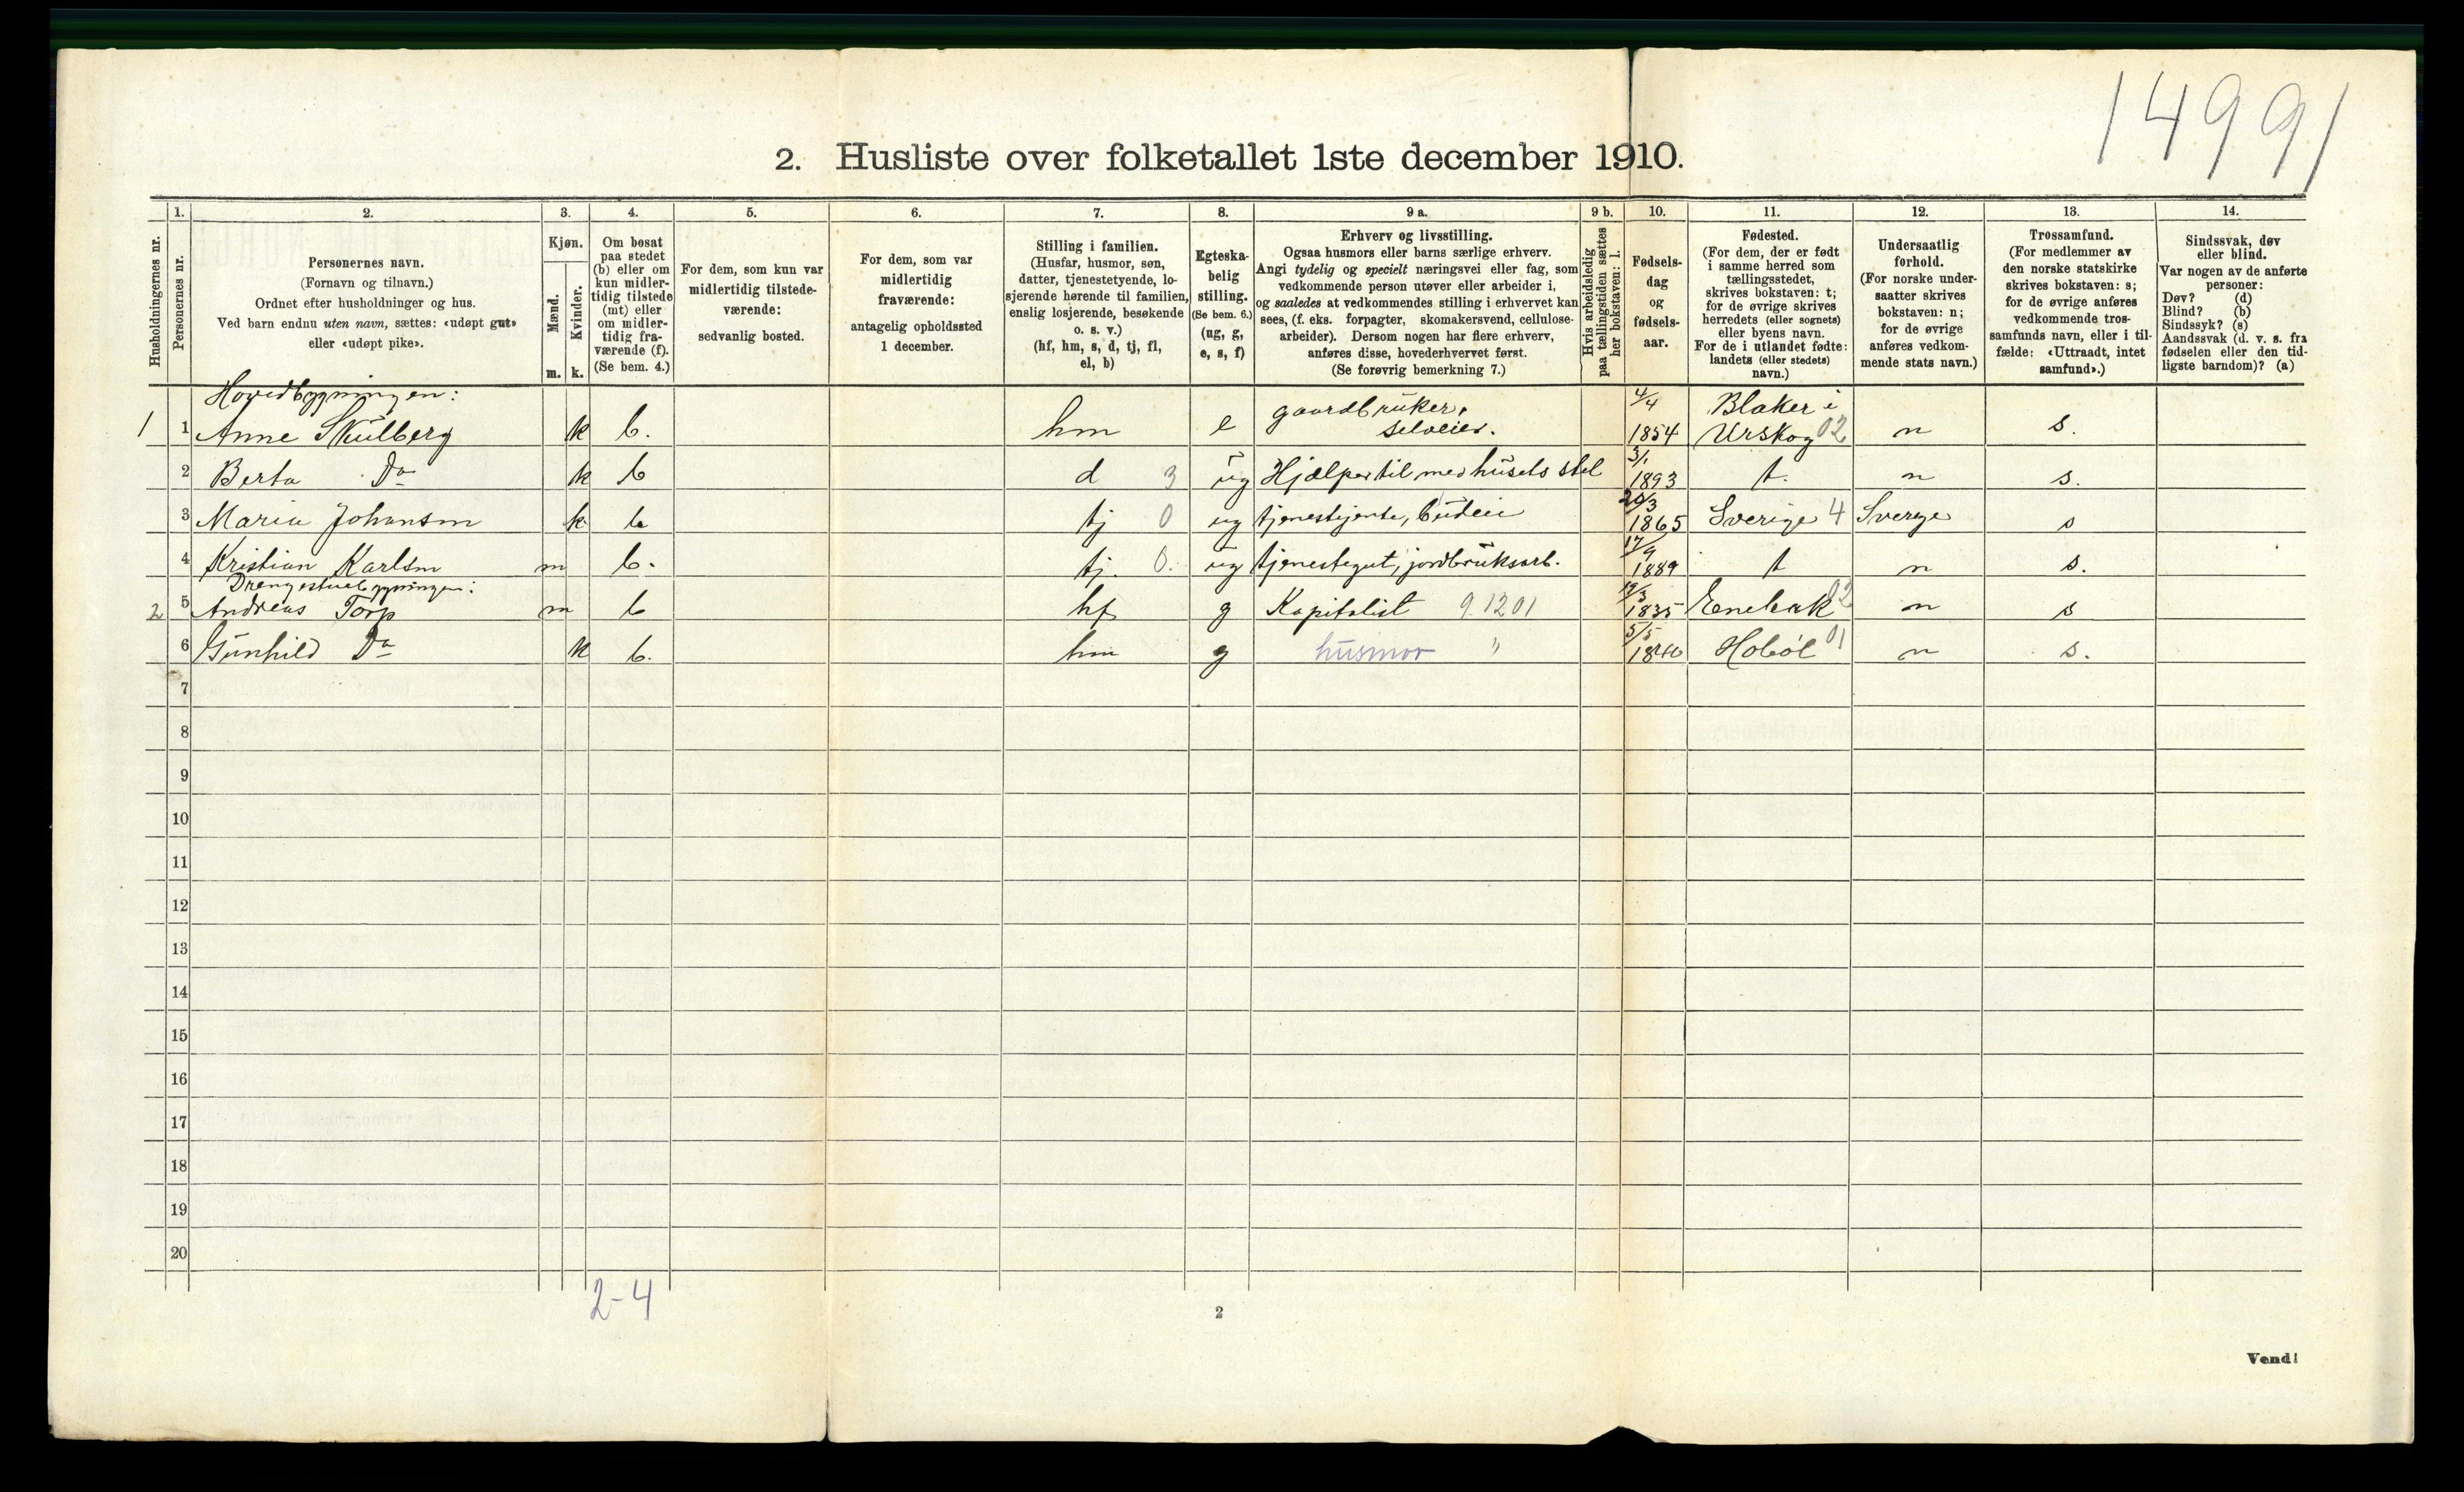 14991
2. Husliste over folketallet 1ste december 1910.
Husholdningernes nr.
1.
Personernes nr.
2.
Personernes navn.
(Fornavn og tilnavn.)
Ordnet efter husholdninger og hus.
Ved barn endnu uten navn, sættes: «udøpt gut»
eller «udøpt pike».
3.
Kjøn.
Mænd.
Kvinder.
m. k.
4.
Om bosat
paa stedet
(b) eller om
kun midler-
tidig tilstede
(mt) eller
om midler-
tidig fra-
værende (f).
(Se bem. 4.)
5.
For dem, som kun var
midlertidig tilstede-
værende:
sedvanlig bosted.
6.
For dem, som var
midlertidig
fraværende:
antagelig opholdssted
1 december.
7.
Stilling i familien.
(Husfar, husmor, søn,
datter, tjenestetyende, lo-
sjerende hørende til familien,
enslig losjerende, besøkende
o. s. v.)
(hf, hm, s, d, tj, fl,
el, b)
8.
Egteska-
belig
stilling.
(Se bem. 6.)
(ug, g,
e, s, f)
9 a.
Erhverv og livsstilling.
Ogsaa husmors eller barns særlige erhverv.
Angi tydelig og specielt næringsvei eller fag, som
vedkommende person utøver eller arbeider i,
og saaledes at vedkommendes stilling i erhvervet kan
sees, (f. eks. forpagter, skomakersvend, cellulose-
arbeider). Dersom nogen har flere erhverv,
anføres disse, hovederhvervet først.
(Se forøvrig bemerkning 7.)
9 b.
Hvis arbeidsledig
paa tællingstiden sættes
her bokstaven: l.
10.
Fødsels-
dag
og
fødsels-
aar.
11.
Fødested.
(For dem, der er født
i samme herred som
tællingsstedet,
skrives bokstaven: t;
for de øvrige skrives
herredets (eller sognets)
eller byens navn.
For de i utlandet fødte:
landets (eller stedets)
navn.)
12.
Undersaatlig
forhold.
(For norske under-
saatter skrives
bokstaven: n;
for de øvrige
anføres vedkom-
mende stats navn.)
13.
Trossamfund.
(For medlemmer av
den norske statskirke
skrives bokstaven: s;
for de øvrige anføres
vedkommende tros-
samfunds navn, eller i til-
fælde: «Uttraadt, intet
samfund».)
14.
Sindssvak, døv
eller blind.
Var nogen av de anførte
personer:
Døv? (d)
Blind? (b)
Sindssyk? (s)
Aandssvak (d. v. s. fra
fødselen eller den tid-
ligste barndom)? (a)
Hovedbygningen:
1 1 Anne Skulberg k b. hm e gaardbruker, selveier. 4/4 1854 Blaker i Urskog 02 n s.
2 Berta Do k b d 3 ug Hjælper til med husets stel 3/1 1893 t. n s.
3 Maria Johansen k b tj 0 ug tjenestejente, budeie 20/3 1865 Sverige 4 Sverge s
4 Kristian Karlsen m b. tj. 0. ug tjenestegut, jordbruksarb. 17/9 1889 t n s.
Drengestuebygningen:
2 5 Andreas Torp m b hf g Kapitalist 9.1201 19/3 1835 Enebak 02 n s
6 Gunhild Do k b. hm g husmor " 5/5 1840 Hobøl 01 n s.
7
8
9
10
11
12
13
14
15
16
17
18
19
20
2-4
2
Vend!